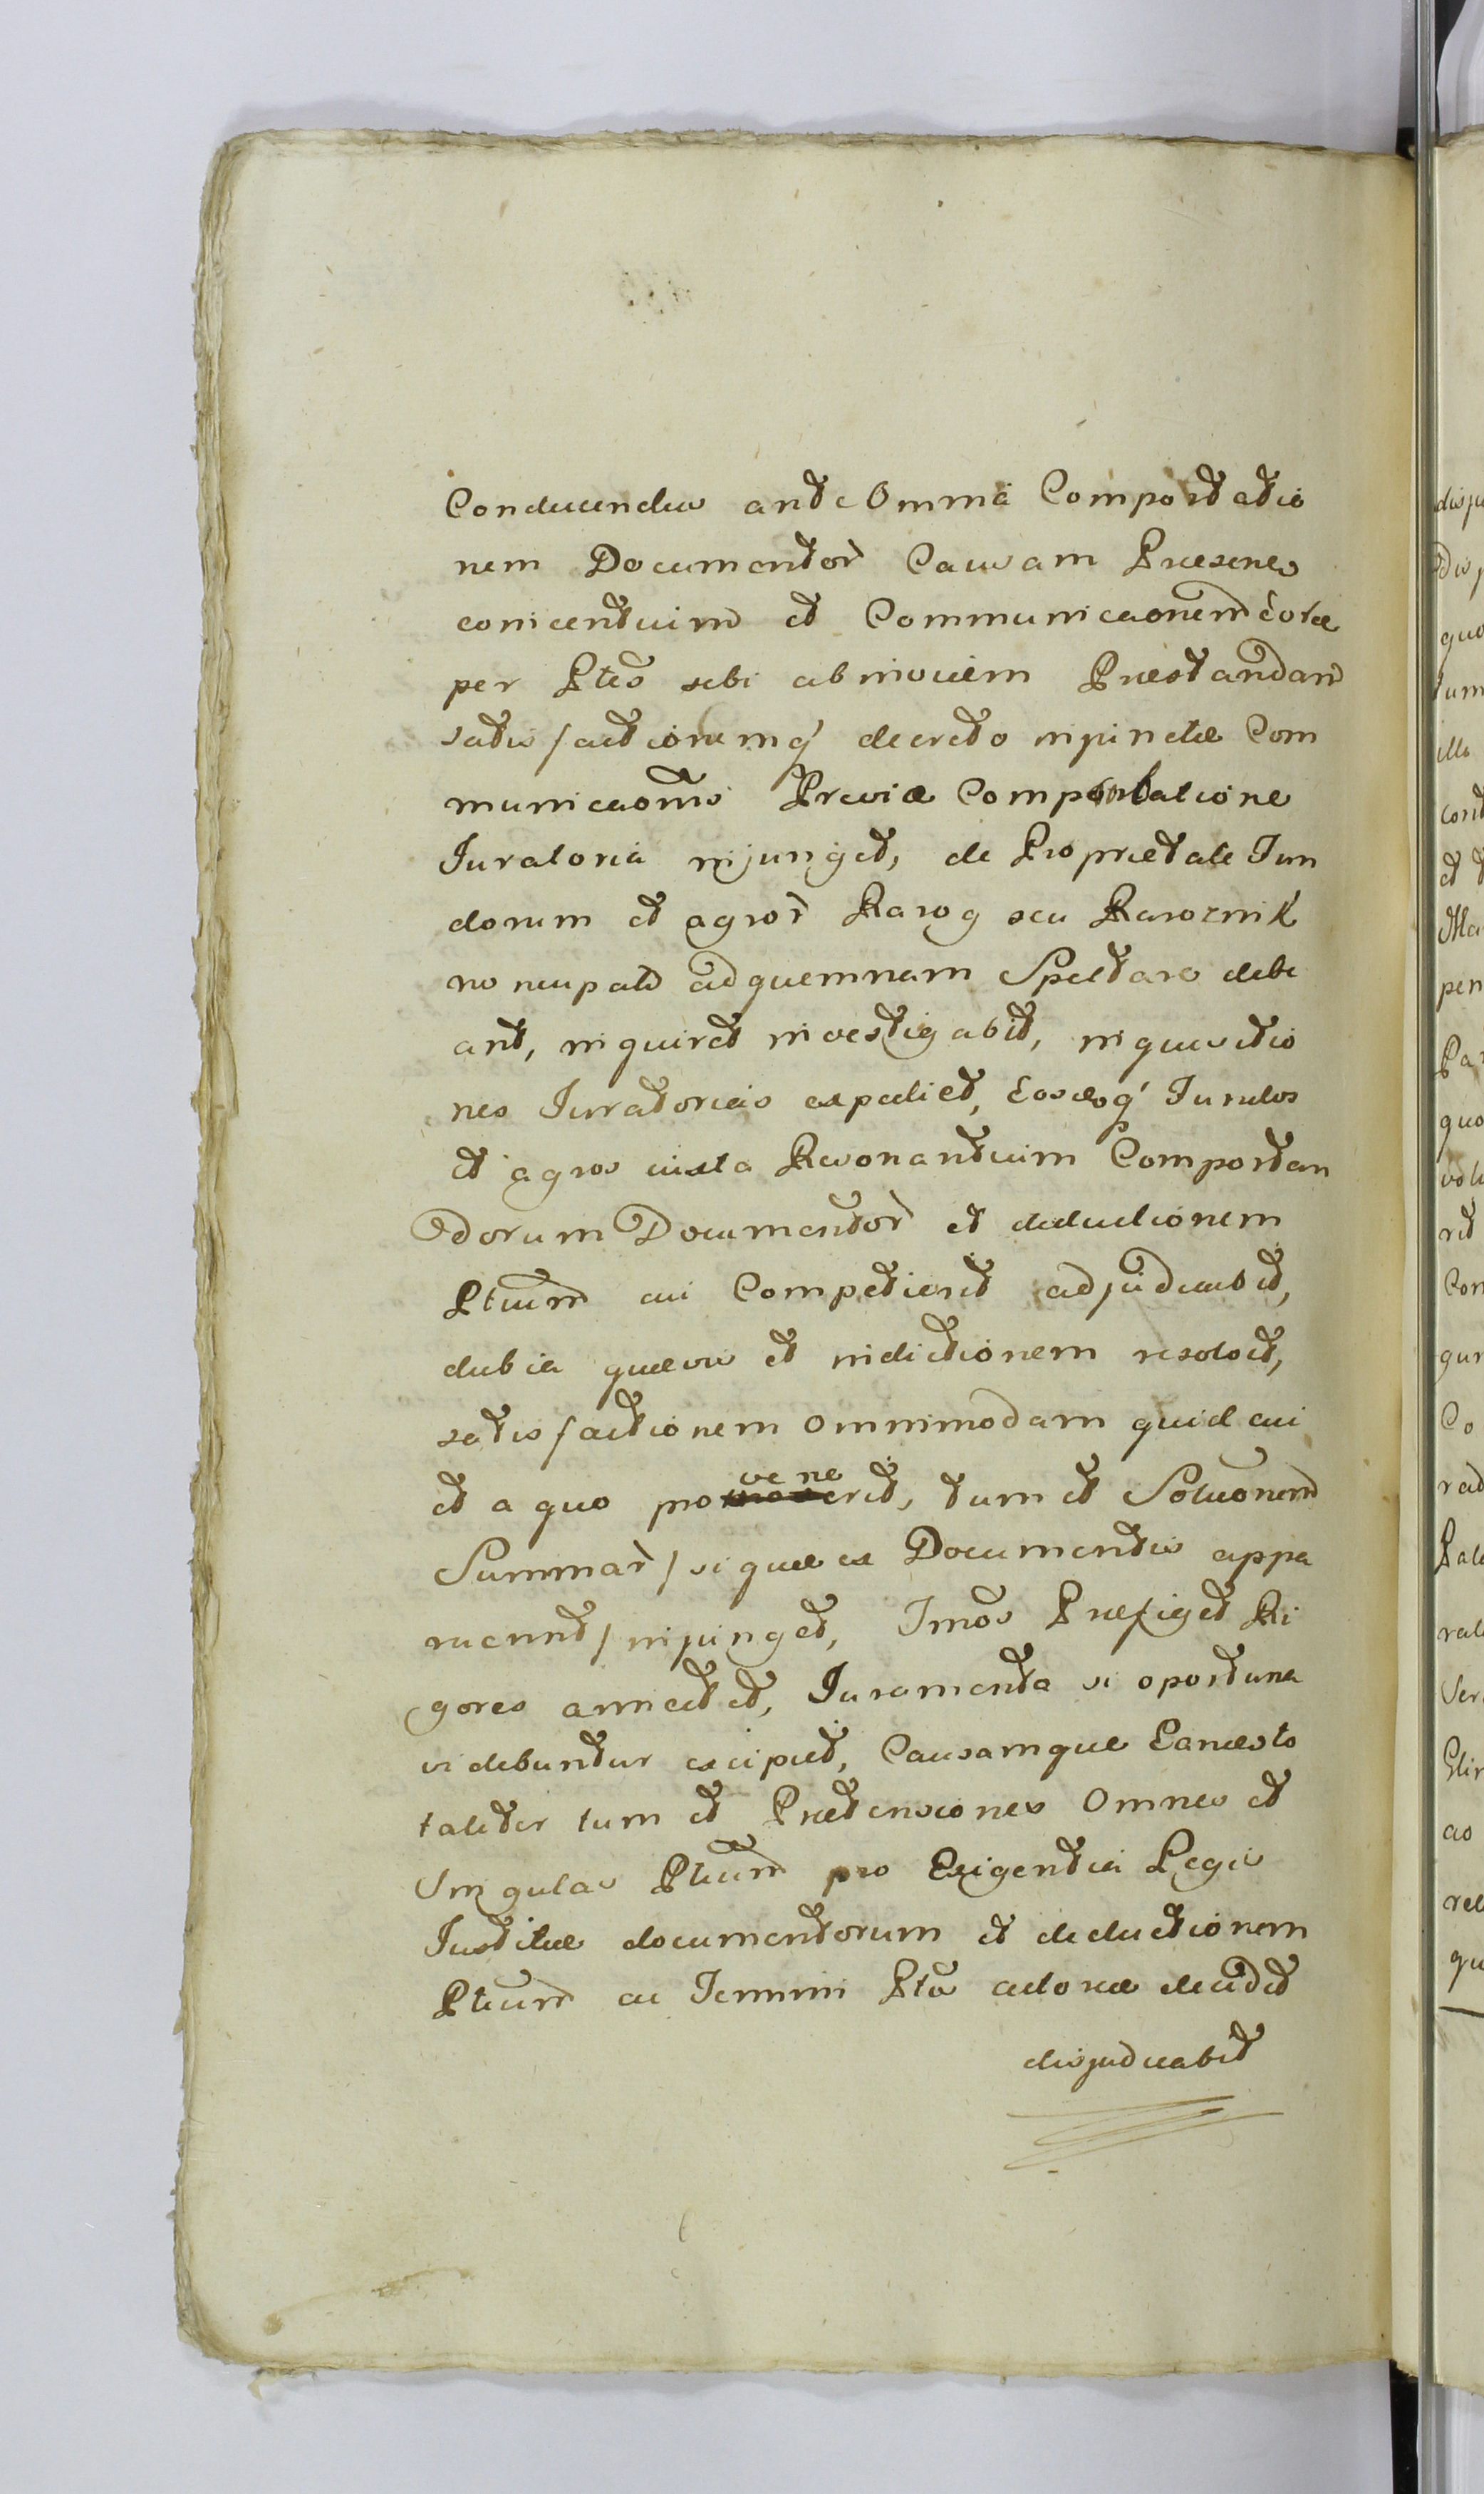 Conducendis ante Omnia Comportatio
nem Documentor̀ Causam Præsenes
concernentium et Communicaonem eor̀ce
per Ptes sibi ab invicem Præstandam
satisfactionemq́ decreto injunctæ Com
municaonis Previa Comportatione
Juratoria injunget, de Proprietate Fun
dorum et agror̀ Rarog seu Rarożnik
noncupat ad quemnam Spectare debe
ant, inquiret investigabit, inquisitio
nes Juratorias expediet, Eosdq́ Fundos
et agros iuxta Resonantiam Comportan
dorum Documentor̀ et deductionem
Ptium cui Competierit adjudicabit,
dubia quævis et indictionem resolvet,
satisfactionem omnimodam quid cui
et a quo provenerit, tum et Soluonem
Summar̀ / si quæ ex Documentis appa
ruerint / injunget, Tmos Præfiget Ri
gores annectet, Juramenta si oportuna
videbuntur excipiet, Causamque Eam
taliter tum et Prætensiones Omnes et
Singulas Ptium pro Exigentia Legis
Justitiæ documentorum et deductionem
Ptium ac Termini Pto actoræ decidet
disjudicabit
disju
quo
tum
illo
cont
et
pen
quo
Con
gur
Co
rad
ao
rel
qu